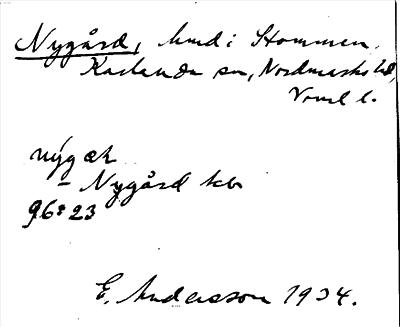 Nygård, hmd i Stommen,
Karlanda sn, Nordmarks hd,
Vrml l.
nýgæṭ
– Nygård kb
96:23
E. Andersson 1934.